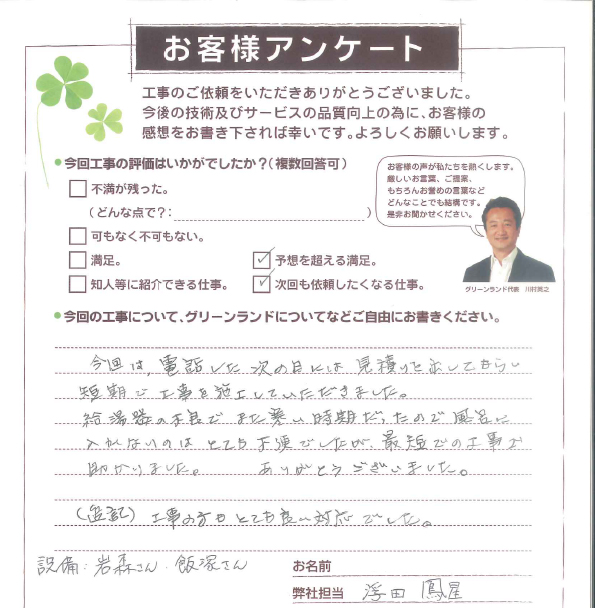 お客様アンケート
工事のご依頼をいただきありがとうございました。
今後の技術及びサービスの品質向上の為に、お客様の
感想をお書き下されば幸いです。よろしくお願いします。
●今回工事の評価はいかがでしたか？(複数回答可)
お客様の声が私たちを熱くします。
厳しいお言葉、ご提案、
もちろんお誉めの言葉など
どんなことでも結構です。
是非お聞かせください。
□不満が残った。
(どんな点で？: )
□可もなく不可もない。
□満足。 ☑予想を超える満足。
□知人等に紹介できる仕事。 ☑次回も依頼したくなる仕事。
グリーンランド代表 川村英之
●今回の工事について、グリーンランドについてなどご自由にお書きください。
今回は、電話した次の日には見積りを出してもらい
短期で工事を施工していただきました。
給湯器の不良でまだ寒い時期だったので風呂に
入れないのはとても不便でしたが、最短での工事で
助かりました。 ありがとうございました。
(追記) 工事の方もとても良い対応でした。
設備:岩森さん・飯塚さん
お名前
弊社担当 浮田